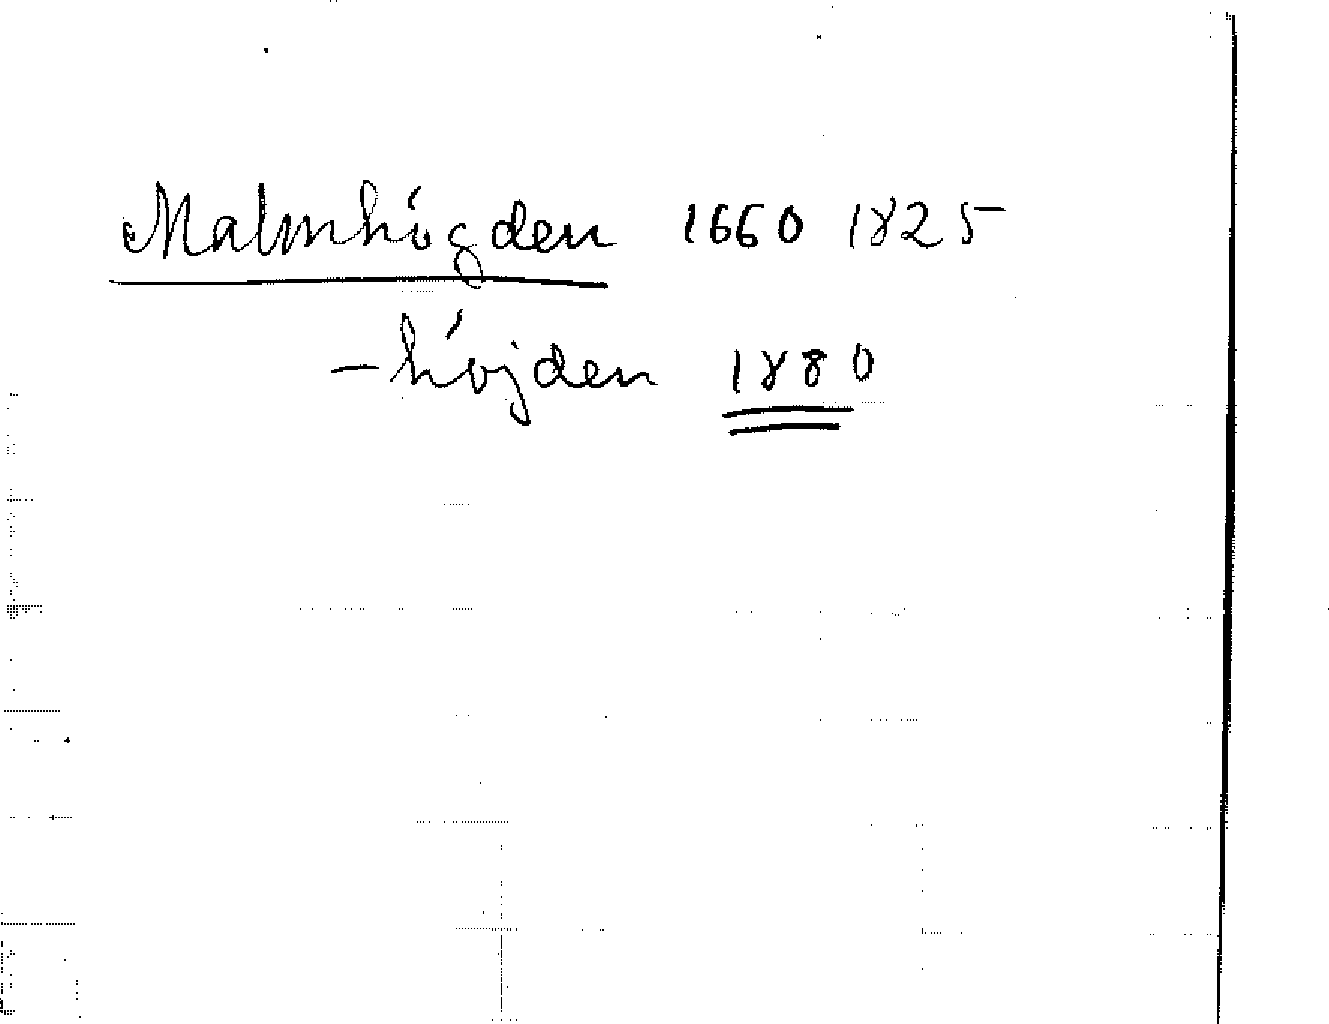 Malmhögden 1660 1825
-höjden 1880